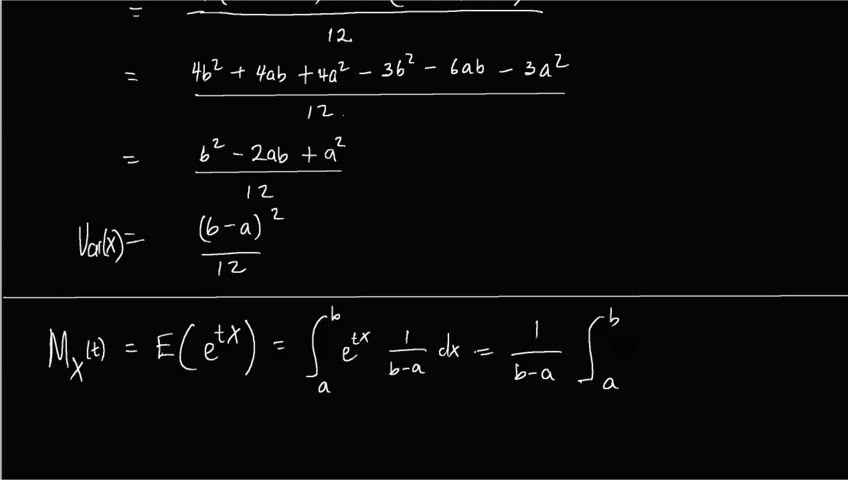 = 12
= 4b² + 4ab + 4a² - 3b² - 6ab - 3a² / 12.
= b² - 2ab + a² / 12
Var(x) = (b-a)² / 12
M_X(t) = E(e^{tX}) = ∫_a^b e^{tx} 1/(b-a) dx = 1/(b-a) ∫_a^b